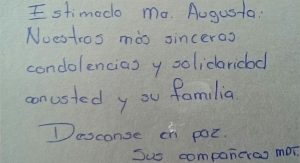 Estimado Ma. Augusta:
Nuestros más sinceras
condolencias y solidaridad
con usted y su familia
Desconse en paz.
Sus compañeras MDT.